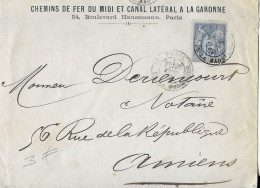 CHEMINS DE FER DU MIDI ET CANAL LATÉRAL A LA GARONNE
54, Boulevard Haussmann, Paris
Monsieur Deriencourt
Notaire
56 Rue de la République
Amiens